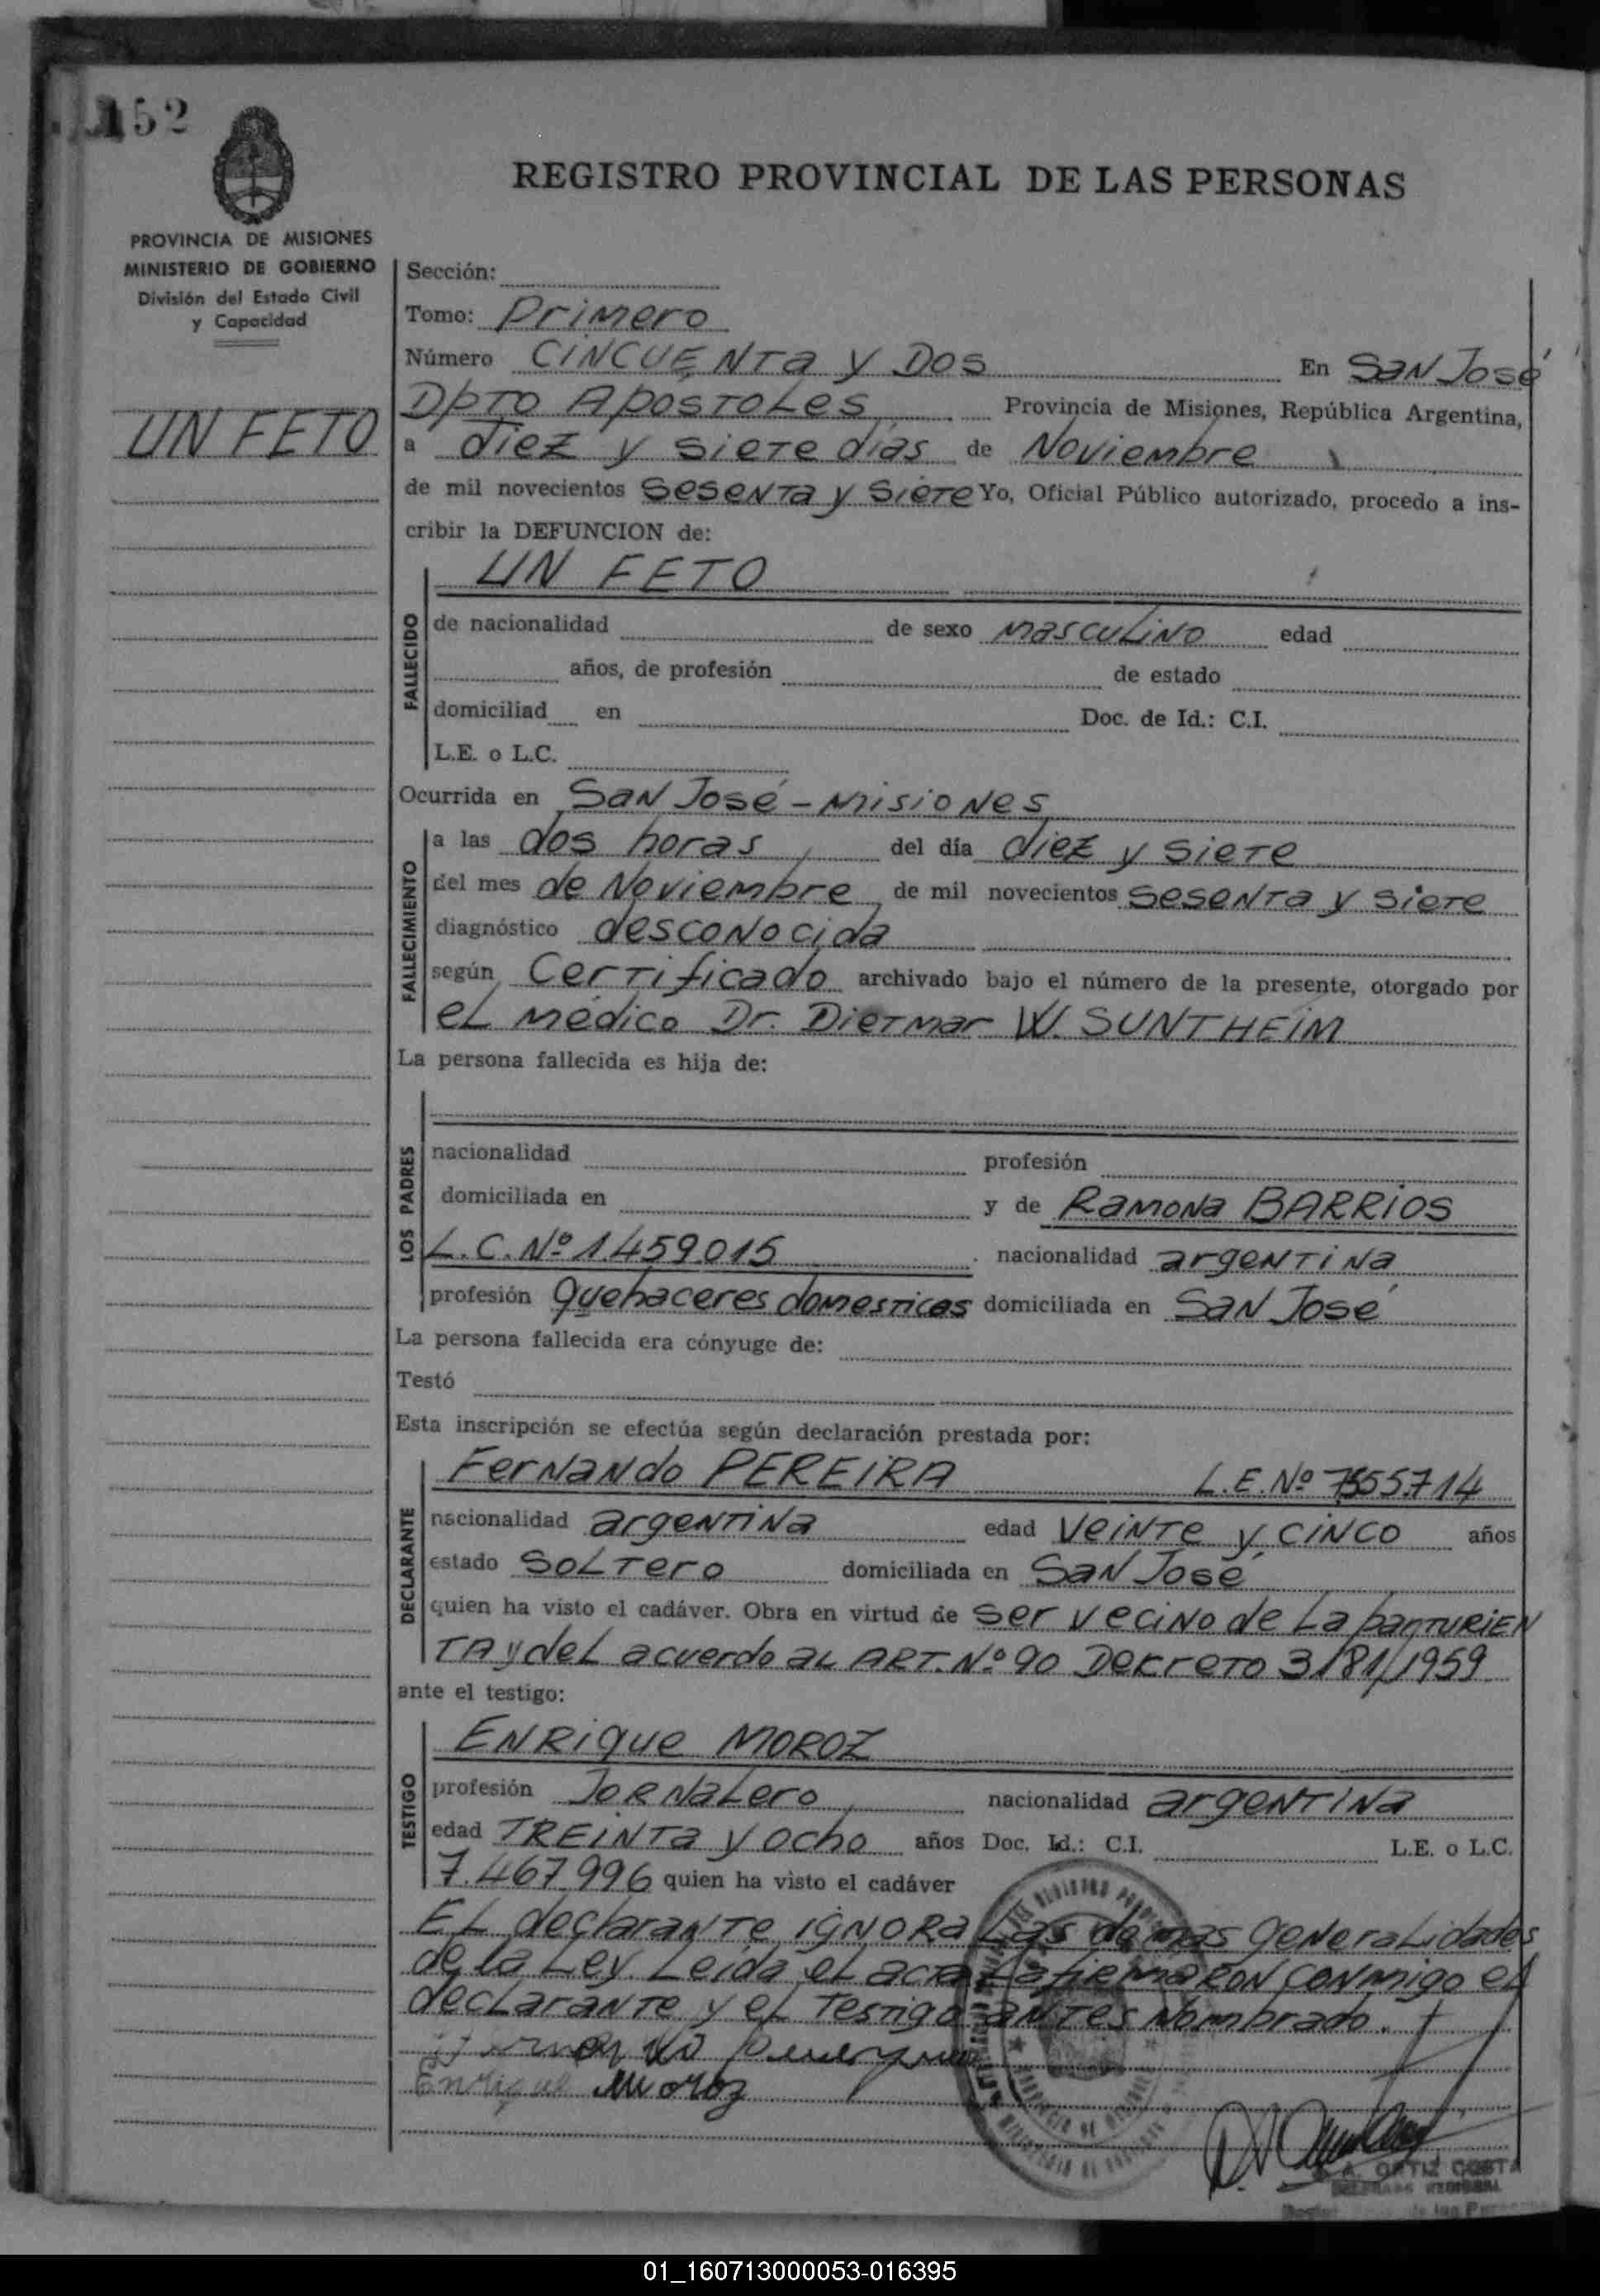 152
REGISTRO PROVINCIAL DE LAS PERSONAS
PROVINCIA DE MISIONES
MINISTERIO DE GOBIERNO
División del Estado Civil
y Capacidad
UN FETO
Sección:
Tomo: Primero
Número CINCUENTA Y DOS En SAN José
DPTO APOSTOLES Provincia de Misiones, República Argentina,
a diez y siete días de Noviembre
de mil novecientos sesenta y siete Yo, Oficial Público autorizado, procedo a ins-
cribir la DEFUNCION de:
UN FETO
FALLECIDO
de nacionalidad de sexo masculino edad
años, de profesión de estado
domiciliad en Doc. de Id.: C.I.
L.E. o L.C.
Ocurrida en San José - Misiones
FALLECIMIENTO
a las dos horas del día diez y siete
del mes de Noviembre de mil novecientos sesenta y siete
diagnóstico desconocida
según Certificado archivado bajo el número de la presente, otorgado por
el médico Dr. Dietmar W. SUNTHEIM
La persona fallecida es hija de:
LOS PADRES
nacionalidad profesión
domiciliada en y de Ramona BARRIOS
L.C. Nº 1459015 nacionalidad argentina
profesión quehaceres domesticos domiciliada en San José
La persona fallecida era cónyuge de:
Testó
Esta inscripción se efectúa según declaración prestada por:
DECLARANTE
Fernando PEREIRA L.E. Nº
nacionalidad argentina edad veinte y cinco años
estado soltero domiciliada en San José
quien ha visto el cadáver. Obra en virtud de ser vecino de la parturien
ta y del acuerdo al ART. Nº 90 Decreto 3181/1959
ante el testigo:
TESTIGO
ENRIQUE MOROZ
profesión Jornalero nacionalidad argentina
edad TREINTA y ocho años Doc. Id.: C.I. L.E. o L.C.
7.467.996 quien ha visto el cadáver
El declarante ignora las demas generalidades
de la Ley Leida el acta la firmaron conmigo el
declarante y el Testigo antes nombrado.
Enrique Moroz
A. ORTIZ COSTA
01_160713000053-016395